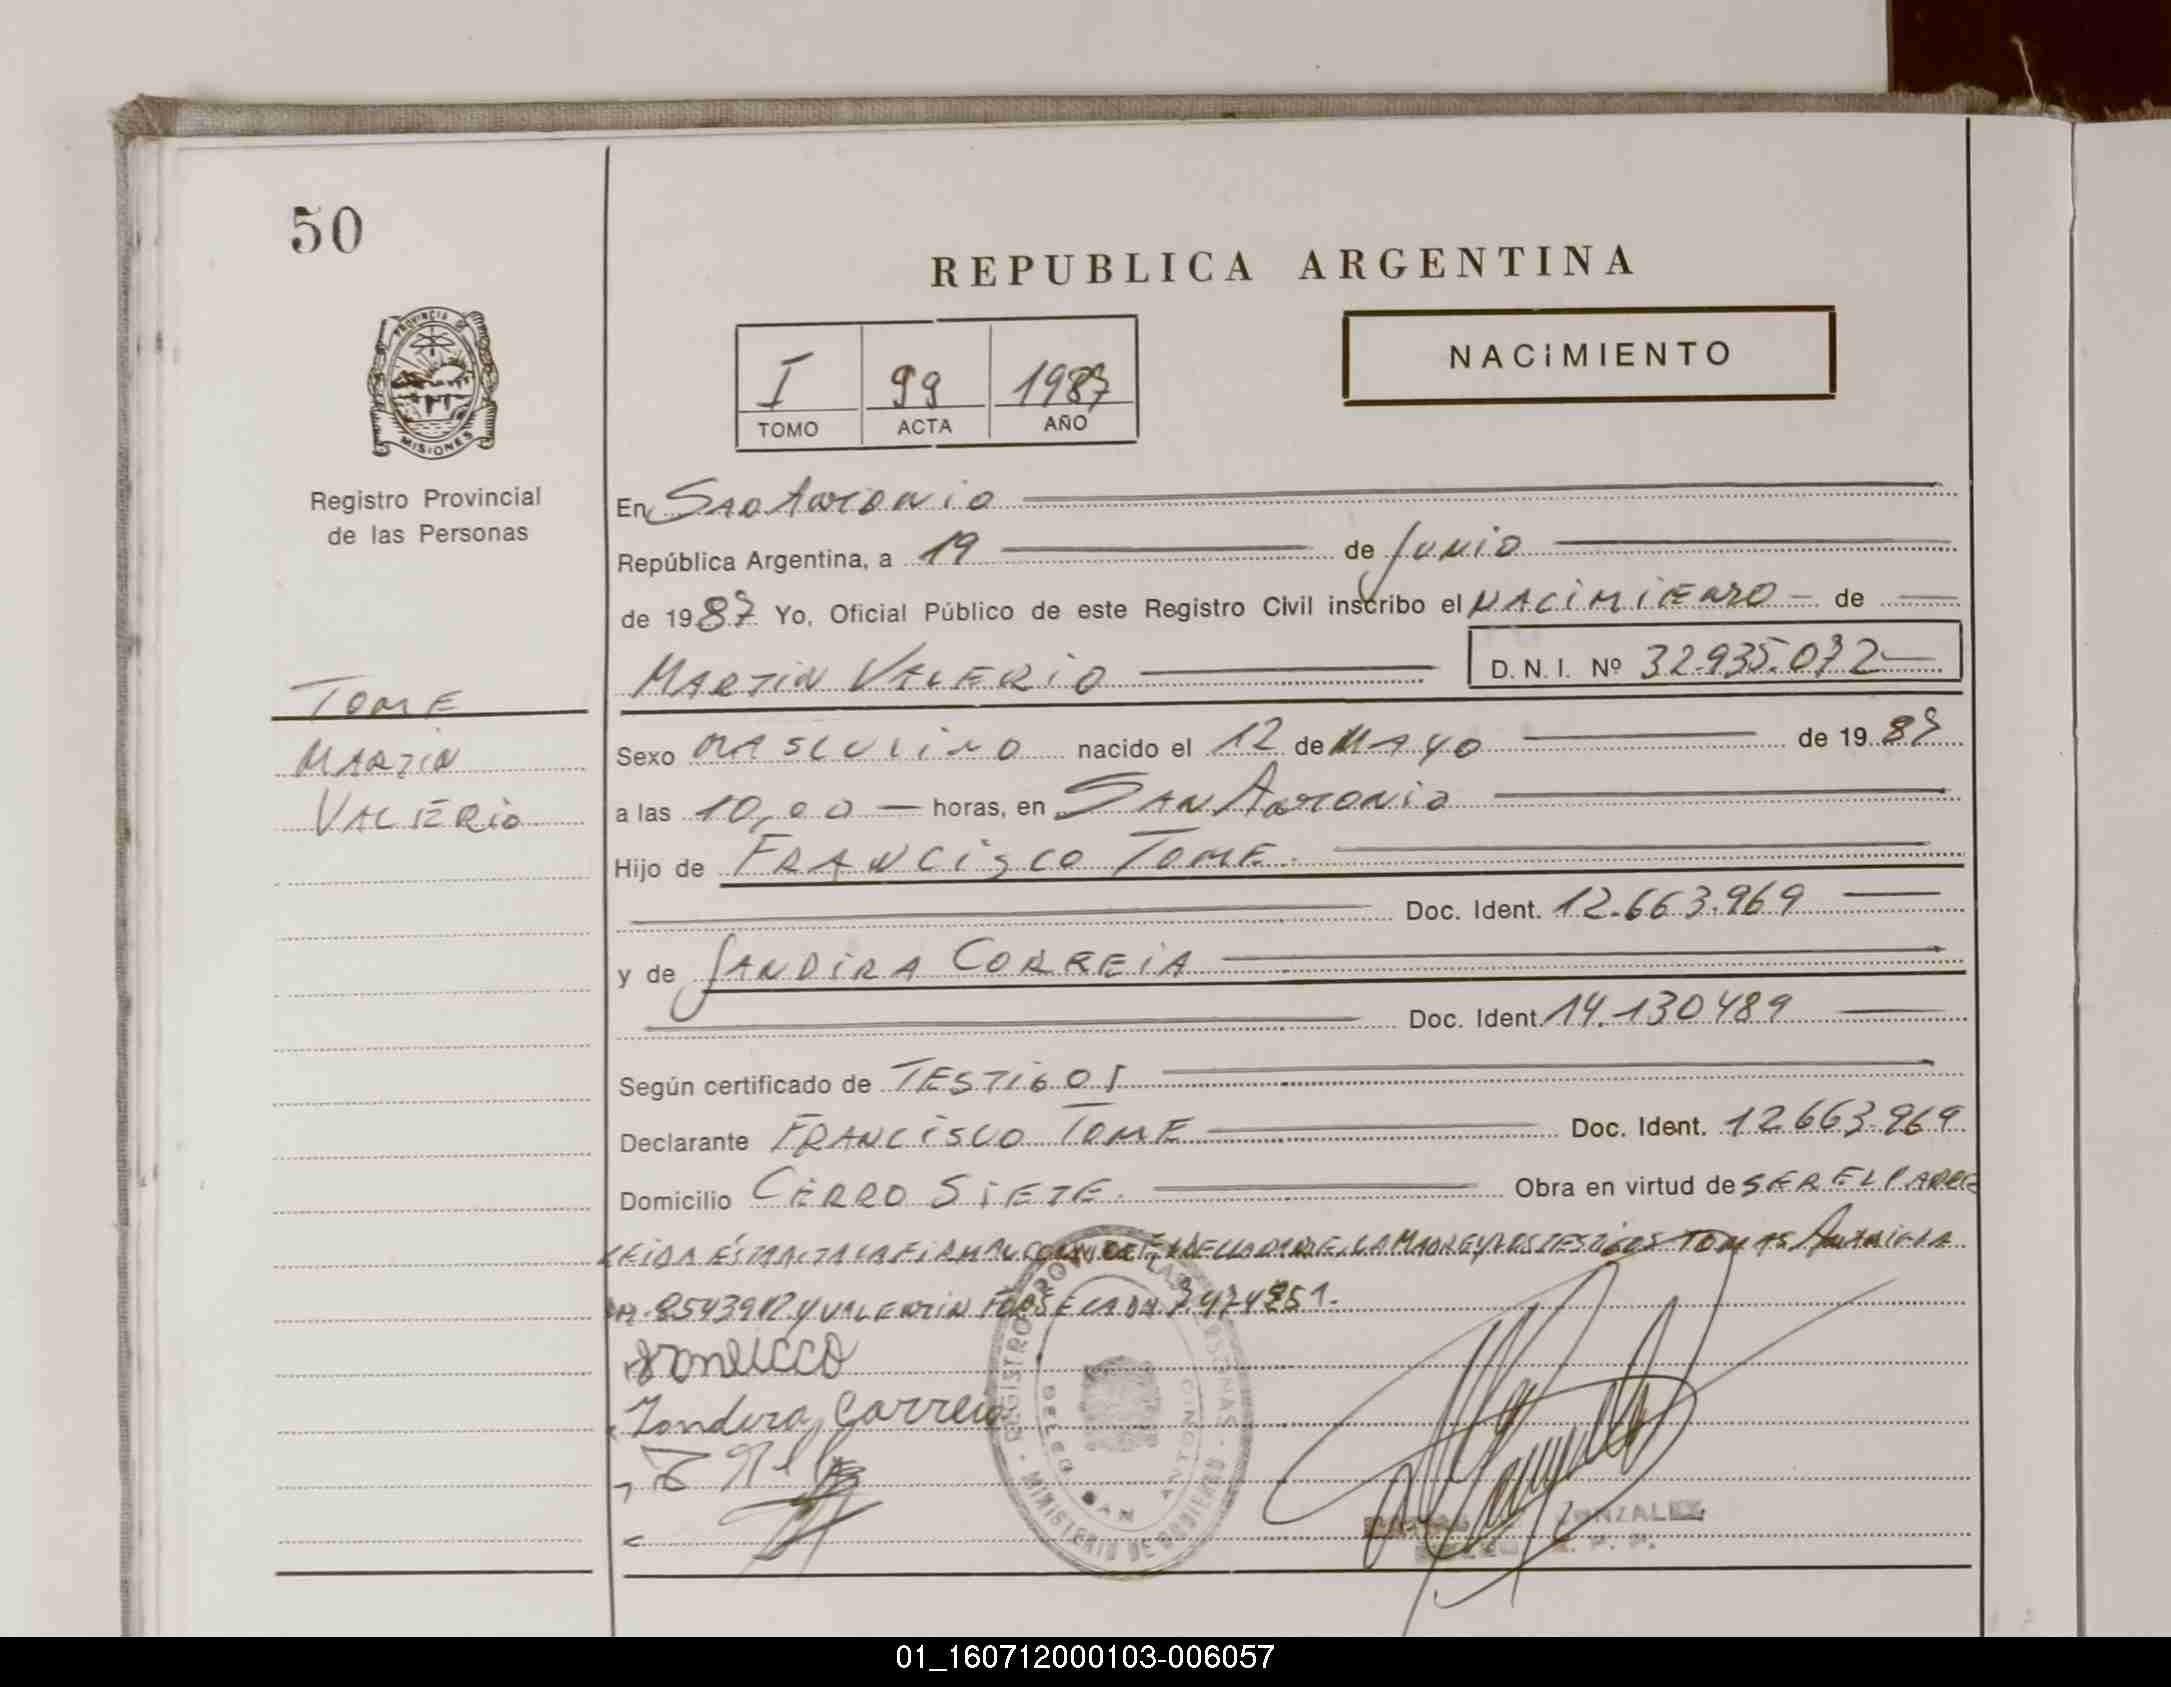 50
REPUBLICA ARGENTINA
NACIMIENTO
I 99 1987
TOMO ACTA AÑO
PROVINCIA DE
MISIONES
Registro Provincial
de las Personas
En San Antonio
República Argentina, a 19 de Junio
de 1987 Yo, Oficial Público de este Registro Civil inscribo el NACIMIENTO de
MARTIN VALERIO D. N. I. Nº 32.935.072
TOME
MARTIN
VALERIO
Sexo MASCULINO nacido el 12 de MAYO de 1987
a las 10,00 horas, en SAN ANTONIO
Hijo de FRANCISCO TOME.
Doc. Ident. 12.663.969
y de JANDIRA CORREIA
Doc. Ident. 14.130489
Según certificado de TESTIGOS
Declarante FRANCISCO TOME Doc. Ident. 12663.969
Domicilio CERRO SIETE. Obra en virtud de SER EL PADRE
LEIDA ESTA ACTA LA FIRMAN CON EL DECLARANTE LA MADRE Y LOS TESTIGOS TOMAS
Y VALENTIN FONSECA
Jandira Correia
REGISTRO PROV. DE LAS PERSONAS
MINISTERIO DE GOBIERNO
GONZALEZ
01_160712000103-006057